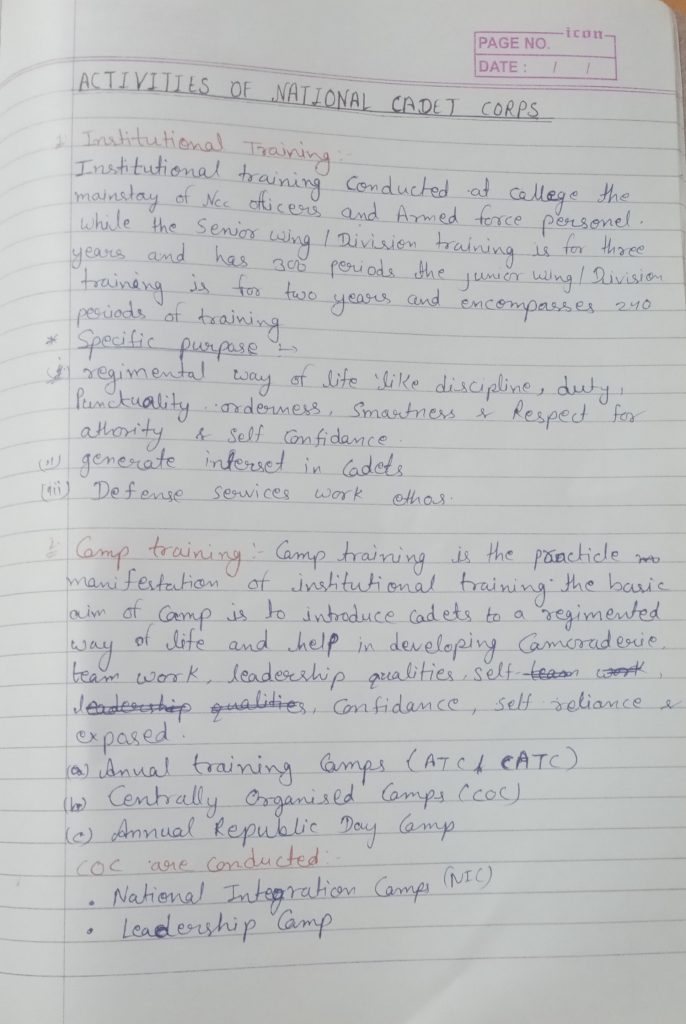 icon
PAGE NO.
DATE : / /
ACTIVITIES OF NATIONAL CADET CORPS
1. Institutional Training :-
Institutional training Conducted at callege the
mainstay of Ncc officers and Armed force personel.
while the Senior wing / Division training is for three
years and has 300 periods the junior wing / Division
training is for two years and encompasses 240
periods of training
* Specific purpase :-
(i) regimental way of life like discipline, duty,
Punctuality orderness, Smartness & Respect for
athority & Self Confidance.
(ii) generate interset in Cadets
(iii) Defense services work ethas.
2. Camp training :- Camp training is the practicle
manifestation of institutional training. the basic
aim of Camp is to introduce cadets to a regimented
way of life and help in developing Camoraderie,
team work, leadership qualities, self team work,
leadership qualities, Confidance, self reliance &
expased.
(a) Anual training Camps (ATC & CATC)
(b) Centrally Organised Camps (COC)
(c) Annual Republic Day Camp
COC are conducted :-
• National Integration Camps (NIC)
• Leadership Camp